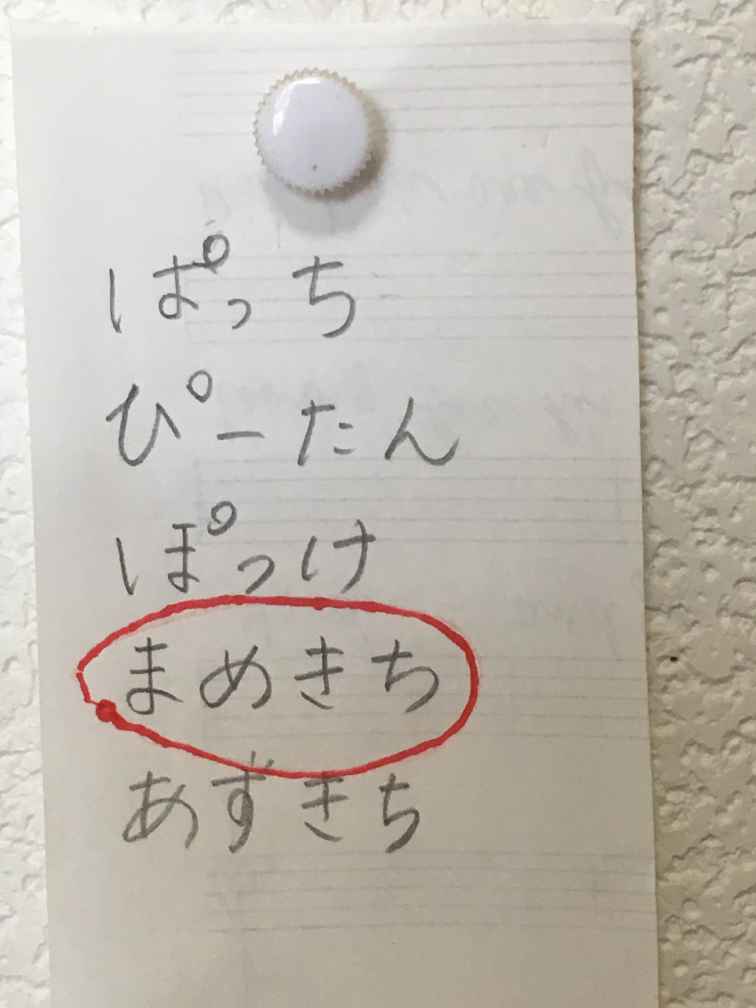 ぱっち
ぴーたん
ぽっけ
まめきち
あずきち